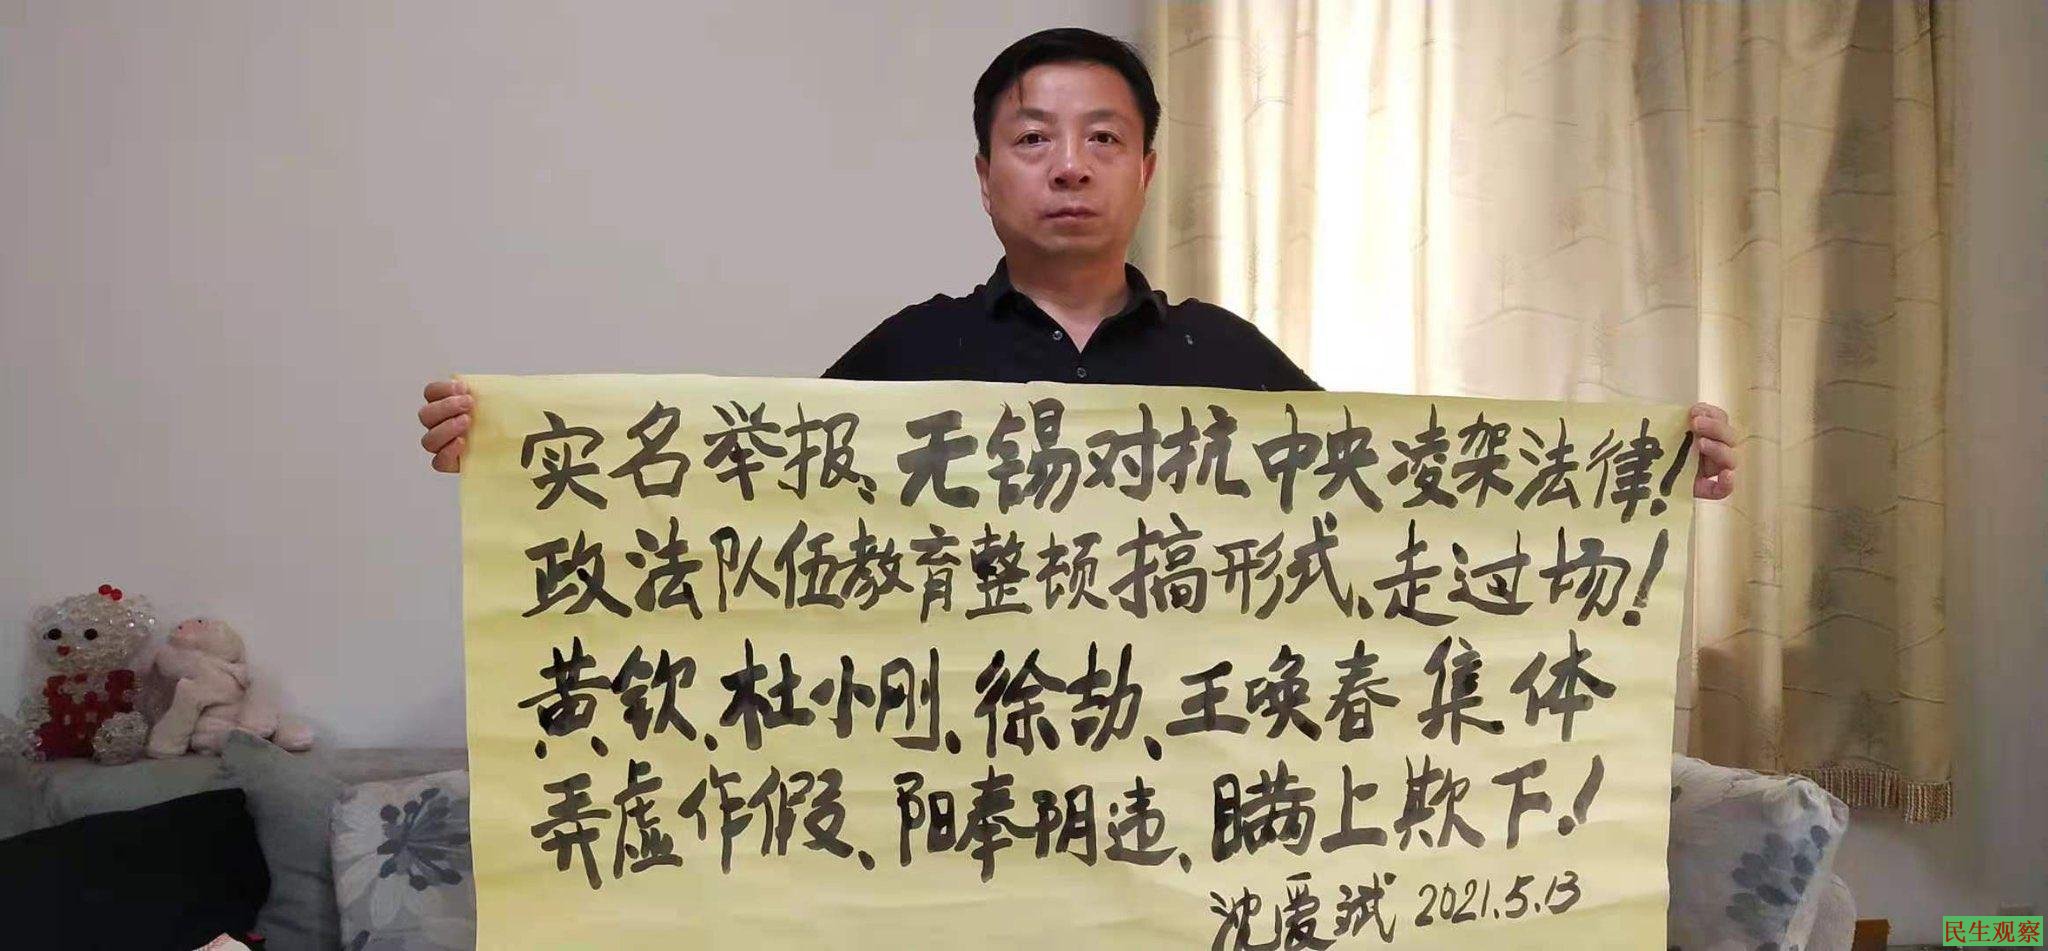 实名举报、无锡对抗中央凌架法律！
政法队伍教育整顿搞形式、走过场！
黄钦、杜小刚、徐劼、王唤春集体
弄虚作假、阳奉阴违、瞒上欺下！
沈爱斌 2021.5.13
民生观察